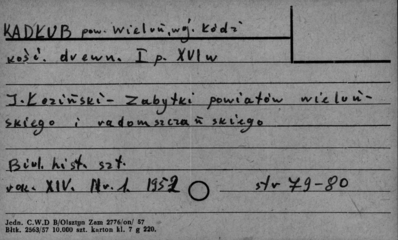 KADŁUB pow. Wieluń, woj. Łódź
kość. drewn. I p. XVI w
J. Łoziński - Zabytki powiatów wieluń-
skiego i radomszczańskiego
Biul. hist. szt.
rok. XIV. Nr. 1. 1952 str 79-80
Jedn. C.W.D B/Olsztyn Zam 2776/on/ 57
Bltk. 2563/57 10.000 szt. karton kl. 7 g 220.